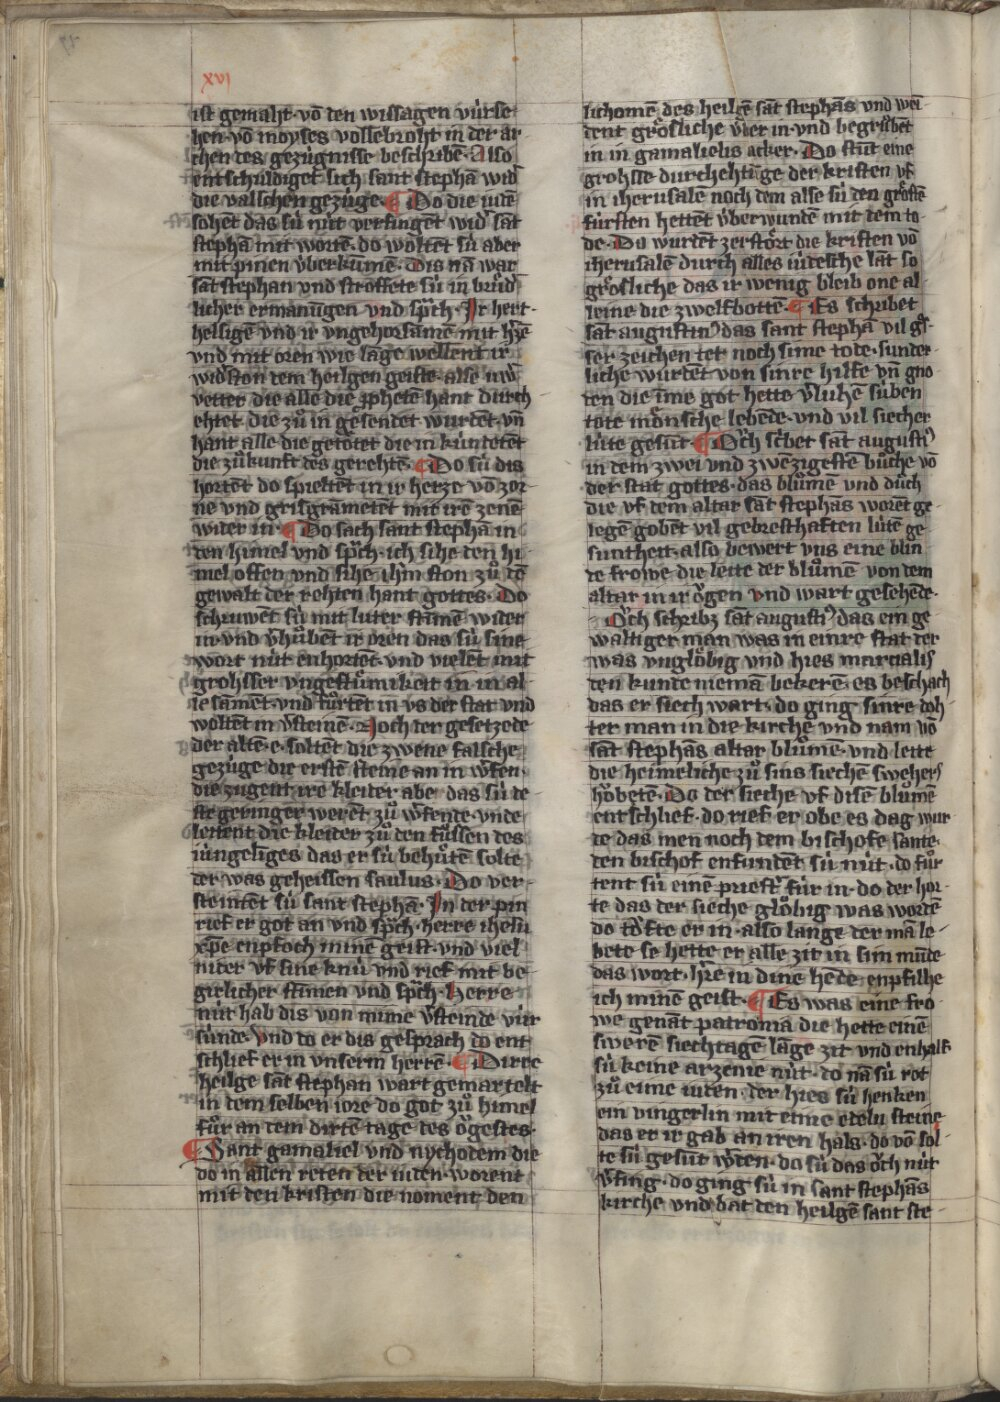 xvi
ist gemaht· vō den wissagen vúrse
hen· vō moyses vollebroht in der ar
chen des gezúgnisse beschribē· Also
entschuldiget sich sant stephā wid
die valschen gezúge· ¶ Do die iudē
sohēt das sú nút verfingent wid sāt
stephā mit wortē· do woltēt sú aber
mit pinen úberkūmē· Dis nā war
sāt stephan vnd stroffete sú in brúd
licher ermanūgen vnd sp̄ch· Ir hert·
helsigē vnd ir vngehorsamē mit h̄zē
vnd mit oren wie lāge wellent ir
widston dem heilgen geiste· alse uw̄
vetter die alle die p̄phetē hant durch
ehtet die zů in gesendet wurdēt· vn̄
hant alle die getötet die in kúndetēt
die zůkunft des gerehtē· ¶ Do sú dis
hortēt do spieltēt in ir herze vō zor
ne vnd grisgrametēt mit irē zenē
wider in· ¶ Do sach sant stephā in
den himel vnd sp̄ch· ich sihe den hi
mel offen vnd sihe ihm̄ ston zů dē
gewalt der rehten hant gottes· Do
schruwēt sú mit luter stīmē wider
in· vnd v̄hůbēt ir oren das sú sine
wort nút enhortēt· vnd vielēt mit
grohsser vngestůmikeit in in al
le samēt· vnd fůrtēt in vs der stat vnd
woltēt in v̄steinē· Noch der gesetzede
der altē·e· soltēt die zwene falsche
gezúge die erstē steine an in w̄fen·
die zugent ire kleider abe das sú de
ste geringer werēt zů w̄fende· vnde
leitent die kleider zů den fůssen des
iúngeliges das er sú behůtē solte
der was geheissen saulus· Do ver
steintēt sú sant stephā· In der pin
rief er got an vnd sp̄ch· herre ihesu
xp̄e enpfoch minē geist· vnd viel
nider vf sine knú vnd rief mit be
girlicher stīmen vnd sp̄ch· Herre
nút hab dis von mime v̄steinde vúr
súnde· vnd do er dis gesprach do ent
schlief er in vnserm herrē· ¶ Dirre
heilge sāt stephan wart gemartelt
in dem selben iore do got zů himel
fůr an dem dirtē tage des ögestes·
¶ Sant gamaliel vnd nychodem die
do in allen reten der iuden· worent
mit den kristen die noment den
lichomē des heilgē sāt stephās vnd wei
dent grösliche v́ber in· vnd begrůbēt
in in gamalielis acker· Do stůt eine
grohsse durchehtūge der kristen vf
in iherusalē noch dem alse sú den gröstē
fúrsten hettēt v́berwundē mit dem to
de· Do wurdēt zerstört die kristen vō
iherusalē durch alles iúdesche lāt so
grösliche das ir wenig bleib one al
leine die zwelfbottē· ¶ Es schribet
sāt augustin9 das sant stephā vil gros
ser zeichen tet noch sime tode· sunder
liche wurdēt von sinre hilfe vn̄ gno
den die ime got hette v̄luhē súben
tote mönsche lebēde· vnd vil siecher
lúte gesūt· ¶ Och sc̄bet sāt augustī9
in dem zwei vnd zwēzigestē bůche vō
der stat gottes· das blůmen vnd důch
die vf dem altar sāt stephās worēt ge
legē gobēt vil gebresthaften lútē ge
suntheit· also bewert vns eine blin
de frowe die leite der blůmē von dem
altar in ir ögen vnd wart gesehēde·
Och schribz sāt augustī9 das ein ge
waltiger man was in einre stat der
was vnglöbig vnd hies marcialis
den kunde niemā bekerē· es beschach
das er siech wart· do ging sinre doh
ter man in die kirche vnd nam vō
sāt stephās altar blůmē· vnd leite
die heimeliche zů sins siechē swehers
höbetē· Do der sieche vf disē blůmē
entschlief· do rief er obe es dag wur
de das men noch dem bischofe sante·
den bischof enfundēt sú nút· do fůr
tent sú einē priest̄ fúr in· do der hor
te das der sieche glöbig was wordē
do töfte er in· also lange der mā le
bete se hette er alle zit in sim mūde
das wort· h̄re in dine hēde enpfilhe
ich minē geist· ¶ Es was eine fro
we genāt patronia die hette einē
swerē siechtagē lāge zit vnd enhalf
sú keine arzenie nút· do nā sú rot
zů eime iuden· der hies sú henken
ein vingerlin mit eime edeln steine
das er ir gab an iren hals· do vō sol
te sú gesūt w̄den· do sú das öch nút
v̄fing· do ging sú in sant stephās
kirche vnd bat den heilgē sant ste-